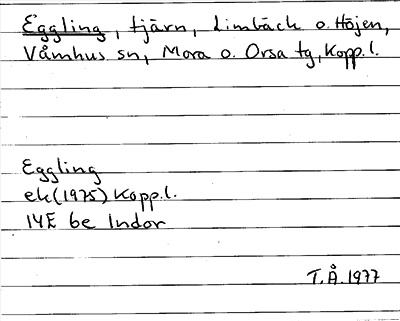 Eggling, tjärn, Limbäck o. Höjen,
Våmhus sn, Mora o. Orsa tg, Kopp.l.
Eggling
ek(1975) Kopp.l.
14E be Indor
T.Å.1977